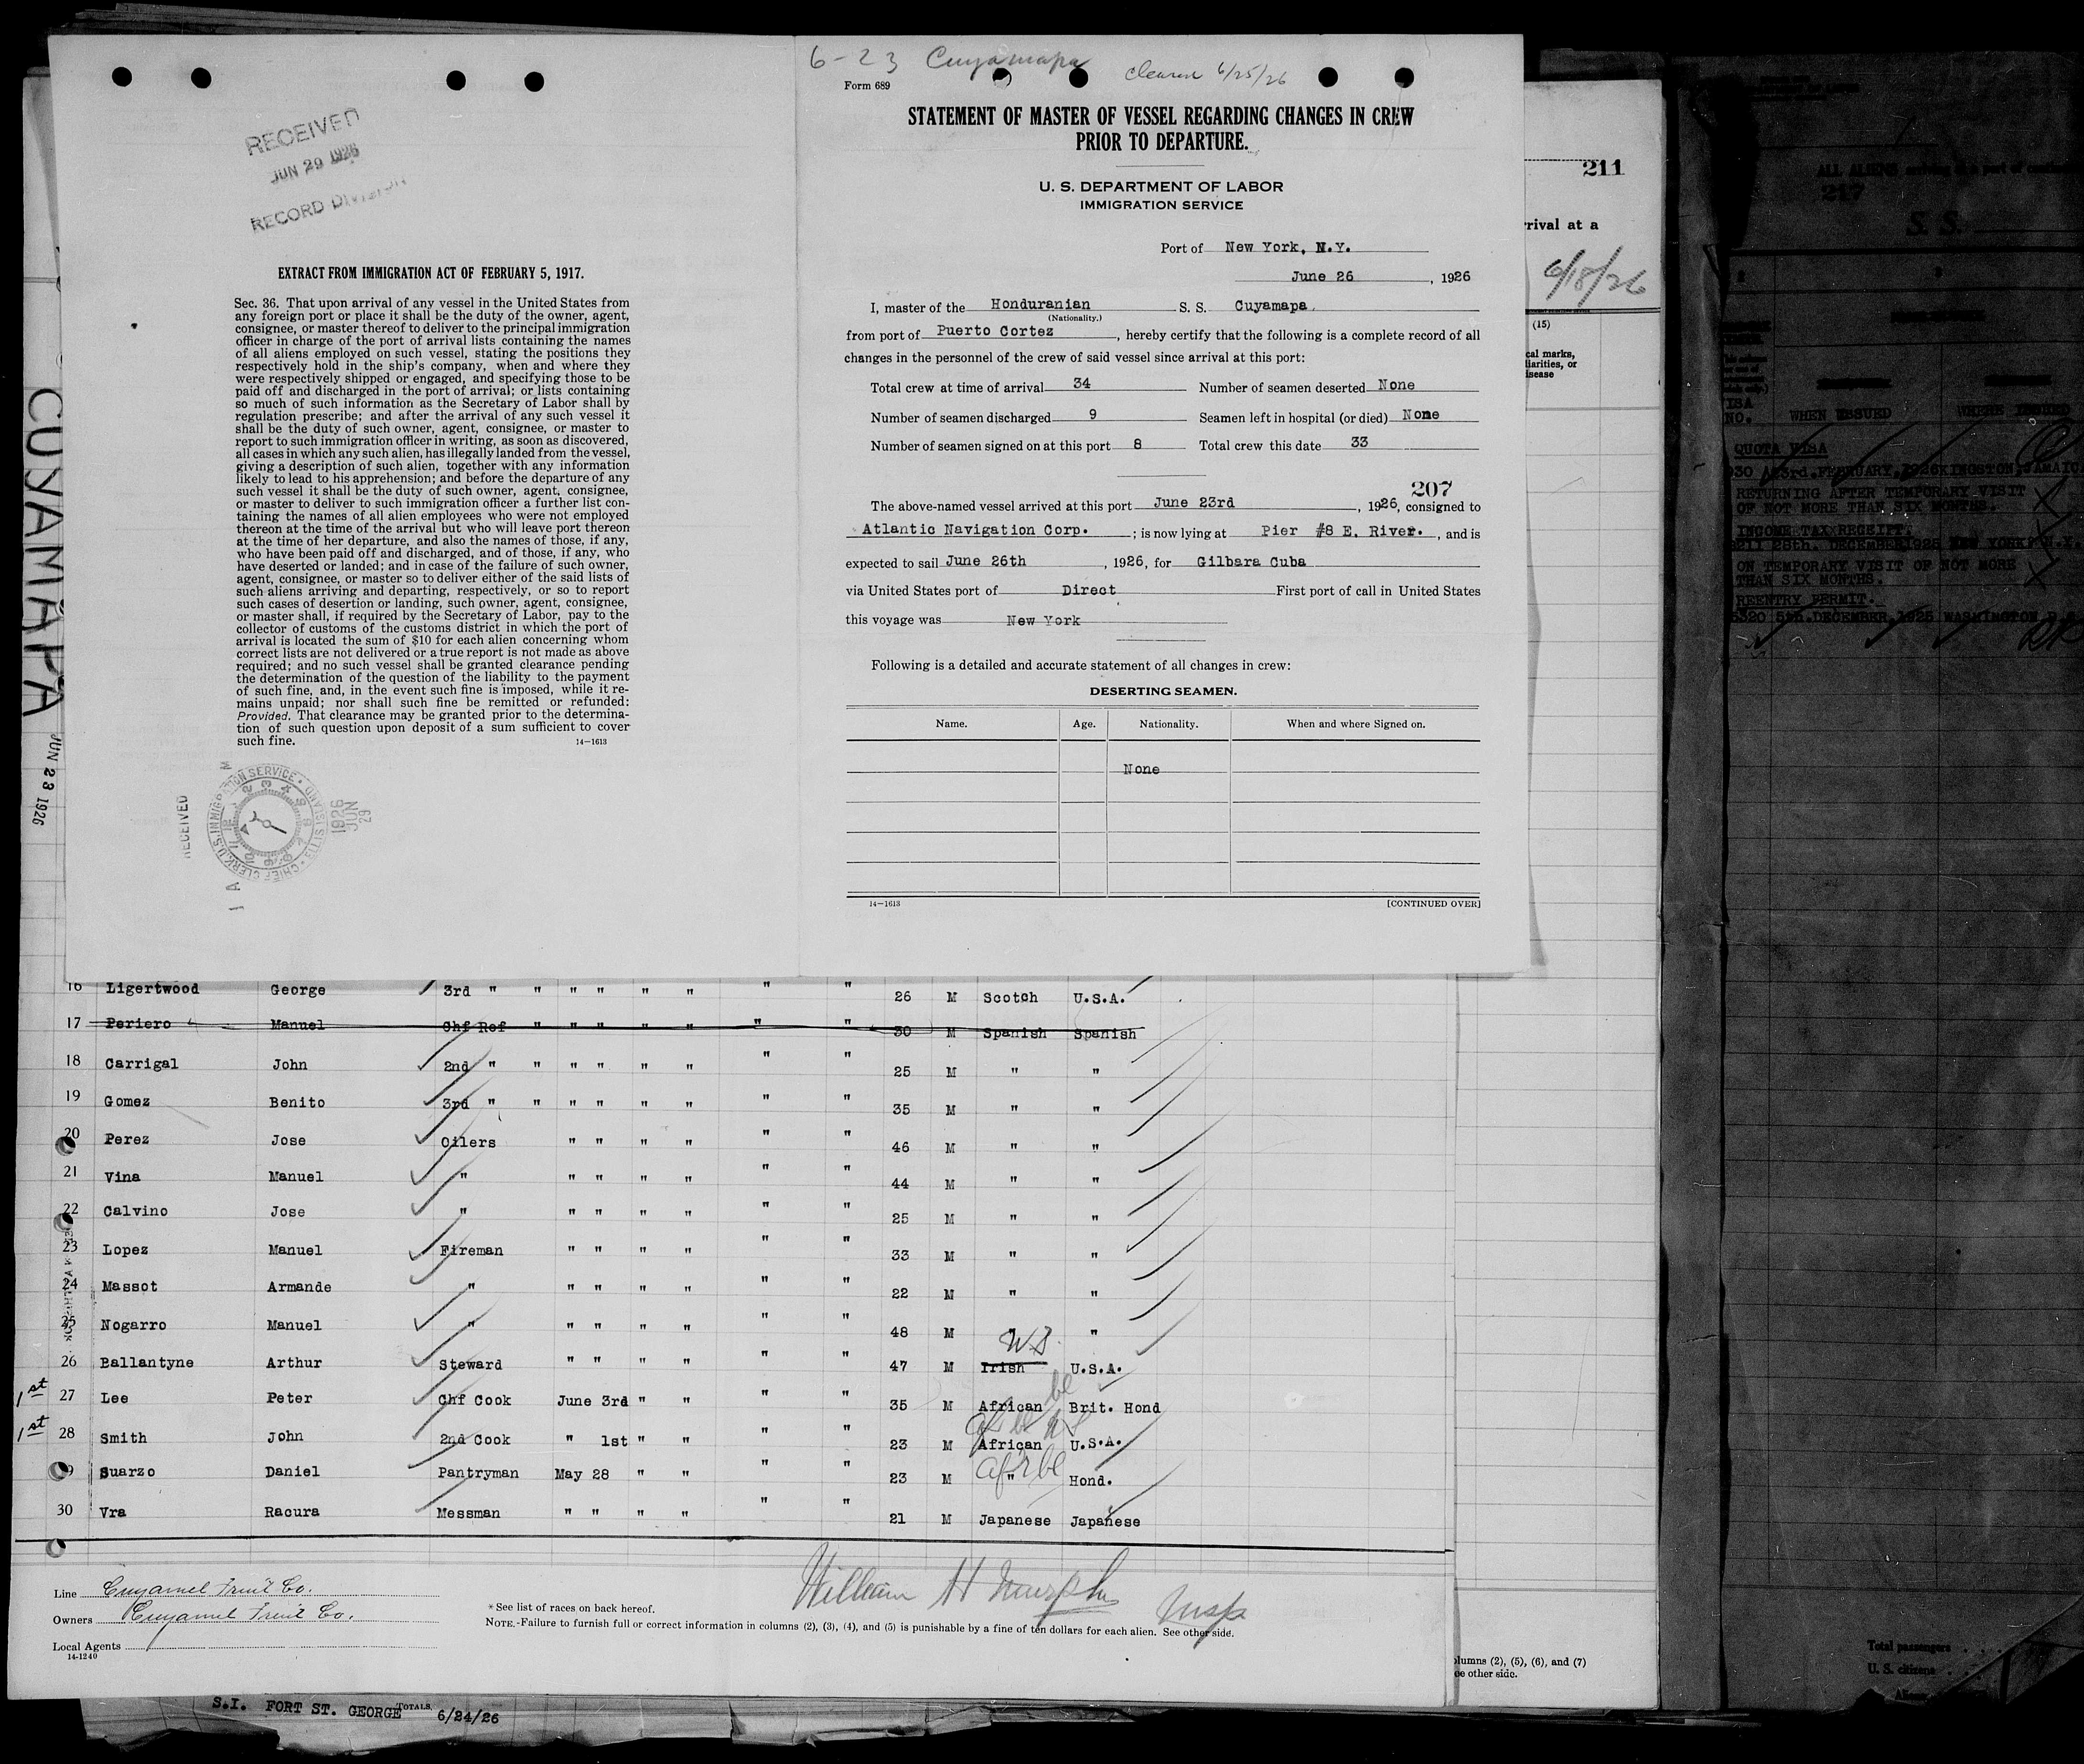 RECEIVED
JUN 29 1926
RECORD DIVISION
EXTRACT FROM IMMIGRATION ACT OF FEBRUARY 5, 1917.
Sec. 36. That upon arrival of any vessel in the United States from
any foreign port or place it shall be the duty of the owner, agent,
consignee, or master thereof to deliver to the principal immigration
officer in charge of the port of arrival lists containing the names
of all aliens employed on such vessel, stating the positions they
respectively hold in the ship's company, when and where they
were respectively shipped or engaged, and specifying those to be
paid off and discharged in the port of arrival; or lists containing
so much of such information as the Secretary of Labor shall by
regulation prescribe; and after the arrival of any such vessel it
shall be the duty of such owner, agent, consignee, or master to
report to such immigration officer in writing, as soon as discovered,
all cases in which any such alien, has illegally landed from the vessel,
giving a description of such alien, together with any information
likely to lead to his apprehension; and before the departure of any
such vessel it shall be the duty of such owner, agent, consignee,
or master to deliver to such immigration officer a further list con-
taining the names of all alien employees who were not employed
thereon at the time of the arrival but who will leave port thereon
at the time of her departure, and also the names of those, if any,
who have been paid off and discharged, and of those, if any, who
have deserted or landed; and in case of the failure of such owner,
agent, consignee, or master so to deliver either of the said lists of
such aliens arriving and departing, respectively, or so to report
such cases of desertion or landing, such owner, agent, consignee,
or master shall, if required by the Secretary of Labor, pay to the
collector of customs of the customs district in which the port of
arrival is located the sum of $10 for each alien concerning whom
correct lists are not delivered or a true report is not made as above
required; and no such vessel shall be granted clearance pending
the determination of the question of the liability to the payment
of such fine, and, in the event such fine is imposed, while it re-
mains unpaid; nor shall such fine be remitted or refunded:
Provided. That clearance may be granted prior to the determina-
tion of such question upon deposit of a sum sufficient to cover
such fine.
14-1613
RECEIVED
CHIEF CLERK, U.S. IMMIGRATION SERVICE
1926
JUN
29
CUYAMAPA
JUN 23 1926
6-23 Cuyamapa
6/25/26
Form 689
STATEMENT OF MASTER OF VESSEL REGARDING CHANGES IN CREW
PRIOR TO DEPARTURE.
U. S. DEPARTMENT OF LABOR
IMMIGRATION SERVICE
Port of New York, N.Y.
June 26, 1926
I, master of the Honduranian S. S. Cuyamapa
(Nationality.)
from port of Puerto Cortez, hereby certify that the following is a complete record of all
changes in the personnel of the crew of said vessel since arrival at this port:
Total crew at time of arrival 34 Number of seamen deserted None
Number of seamen discharged 9 Seamen left in hospital (or died) None
Number of seamen signed on at this port 8 Total crew this date 33
207
The above-named vessel arrived at this port June 23rd, 1926, consigned to
Atlantic Navigation Corp. ; is now lying at Pier #8 E. River. , and is
expected to sail June 26th, 1926, for Gilbara Cuba
via United States port of Direct First port of call in United States
this voyage was New York
Following is a detailed and accurate statement of all changes in crew:
DESERTING SEAMEN.
Name. Age. Nationality. When and where Signed on.
None
14-1613 [CONTINUED OVER]
211
rrival at a
6/18/26
(15)
cal marks,
liarities, or
isease
16 Ligertwood George 3rd " " " " " " " " 26 M Scotch U.S.A.
17 Periero Manuel Chf Ref " " " " " " " 30 M Spanish Spanish
18 Carrigal John 2nd " " " " " " " " 25 M " "
19 Gomez Benito 3rd " " " " " " " " 35 M " "
20 Perez Jose Oilers " " " " " " 46 M " "
21 Vina Manuel " " " " " " " 44 M " "
22 Calvino Jose " " " " " " " 25 M " "
23 Lopez Manuel Fireman " " " " " " 33 M " "
24 Massot Armande " " " " " " " 22 M " "
25 Nogarro Manuel " " " " " " " 48 M " "
26 Ballantyne Arthur Steward " " " " " " 47 M Irish U.S.A.
1st 27 Lee Peter Chf Cook June 3rd " " " " 35 M African Brit. Hond
1st 28 Smith John 2nd Cook " 1st " " " " 23 M African U.S.A.
Suarzo Daniel Pantryman May 28 " " " " 23 M " Hond.
30 Vra Racura Messman " " " " " " 21 M Japanese Japanese
Line Cuyamel Fruit Co.
Owners Cuyamel Fruit Co.
Local Agents
14-1240
*See list of races on back hereof.
NOTE.-Failure to furnish full or correct information in columns (2), (3), (4), and (5) is punishable by a fine of ten dollars for each alien. See other side.
William H Murphy Insp
lumns (2), (5), (6), and (7)
ee other side.
S.I. FORT ST. GEORGE TOTALS 6/24/26
ALL ALIENS
217
S. S.
WHEN ISSUED WHERE ISSUED
QUOTA VISA
3rd.FEBRUARY.1926 KINGSTON,JAMAICA
RETURNING AFTER TEMPORARY VISIT
OF NOT MORE THAN SIX MONTHS.
INCOME TAX RECEIPT.
28th. DECEMBER 1925 NEW YORK N.Y.
ON TEMPORARY VISIT OF NOT MORE
THAN SIX MONTHS.
REENTRY PERMIT.
5th.DECEMBER 1925 WASHINGTON
Total passengers
U. S. citizens